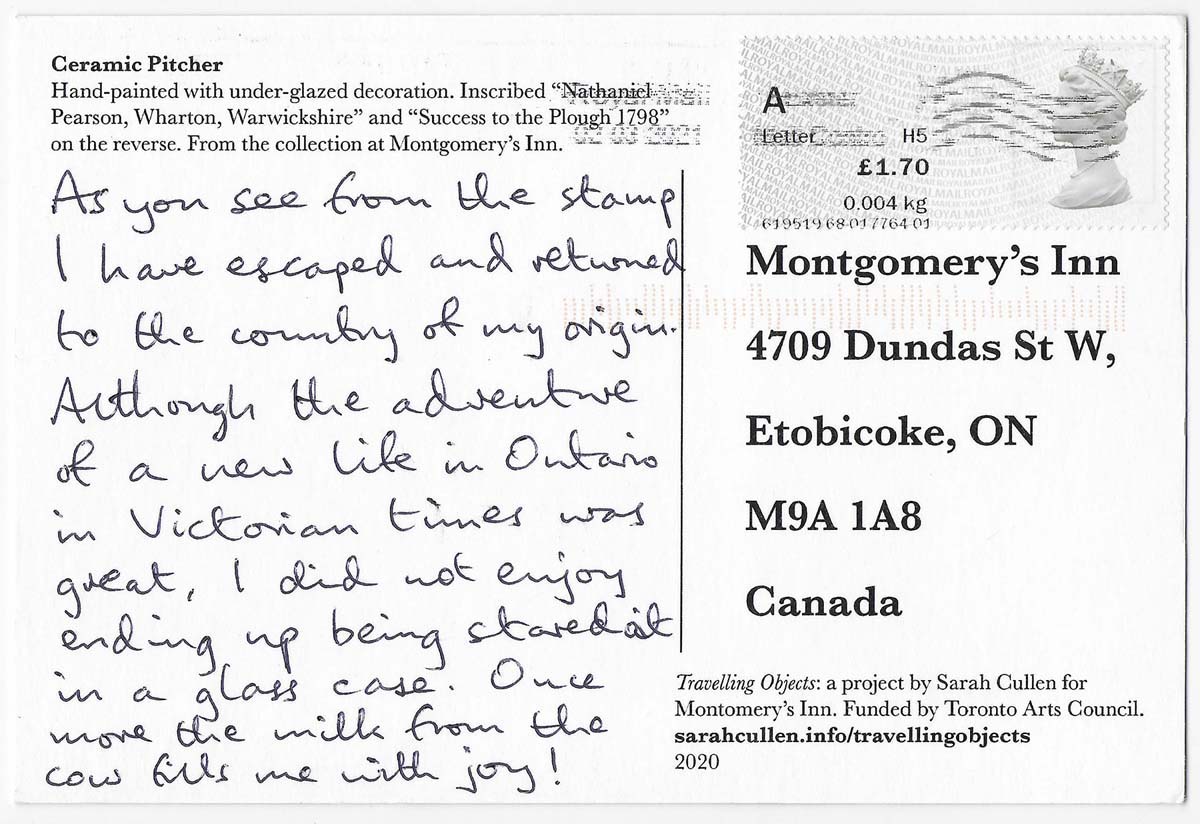 Ceramic Pitcher
Hand-painted with under-glazed decoration. Inscribed “Nathaniel
Pearson, Wharton, Warwickshire” and “Success to the Plough 1798”
on the reverse. From the collection at Montgomery’s Inn.
As you see from the stamp
I have escaped and returned
to the country of my origin.
Although the adventure
of a new life in Ontario
in Victorian times was
great, I did not enjoy
ending up being stared at
in a glass case. Once
more the milk from the
cow fills me with joy!
A
Letter H5
£1.70
0.004 kg
619519 68-017764-01
Montgomery’s Inn
4709 Dundas St W,
Etobicoke, ON
M9A 1A8
Canada
Travelling Objects: a project by Sarah Cullen for
Montomery’s Inn. Funded by Toronto Arts Council.
sarahcullen.info/travellingobjects
2020